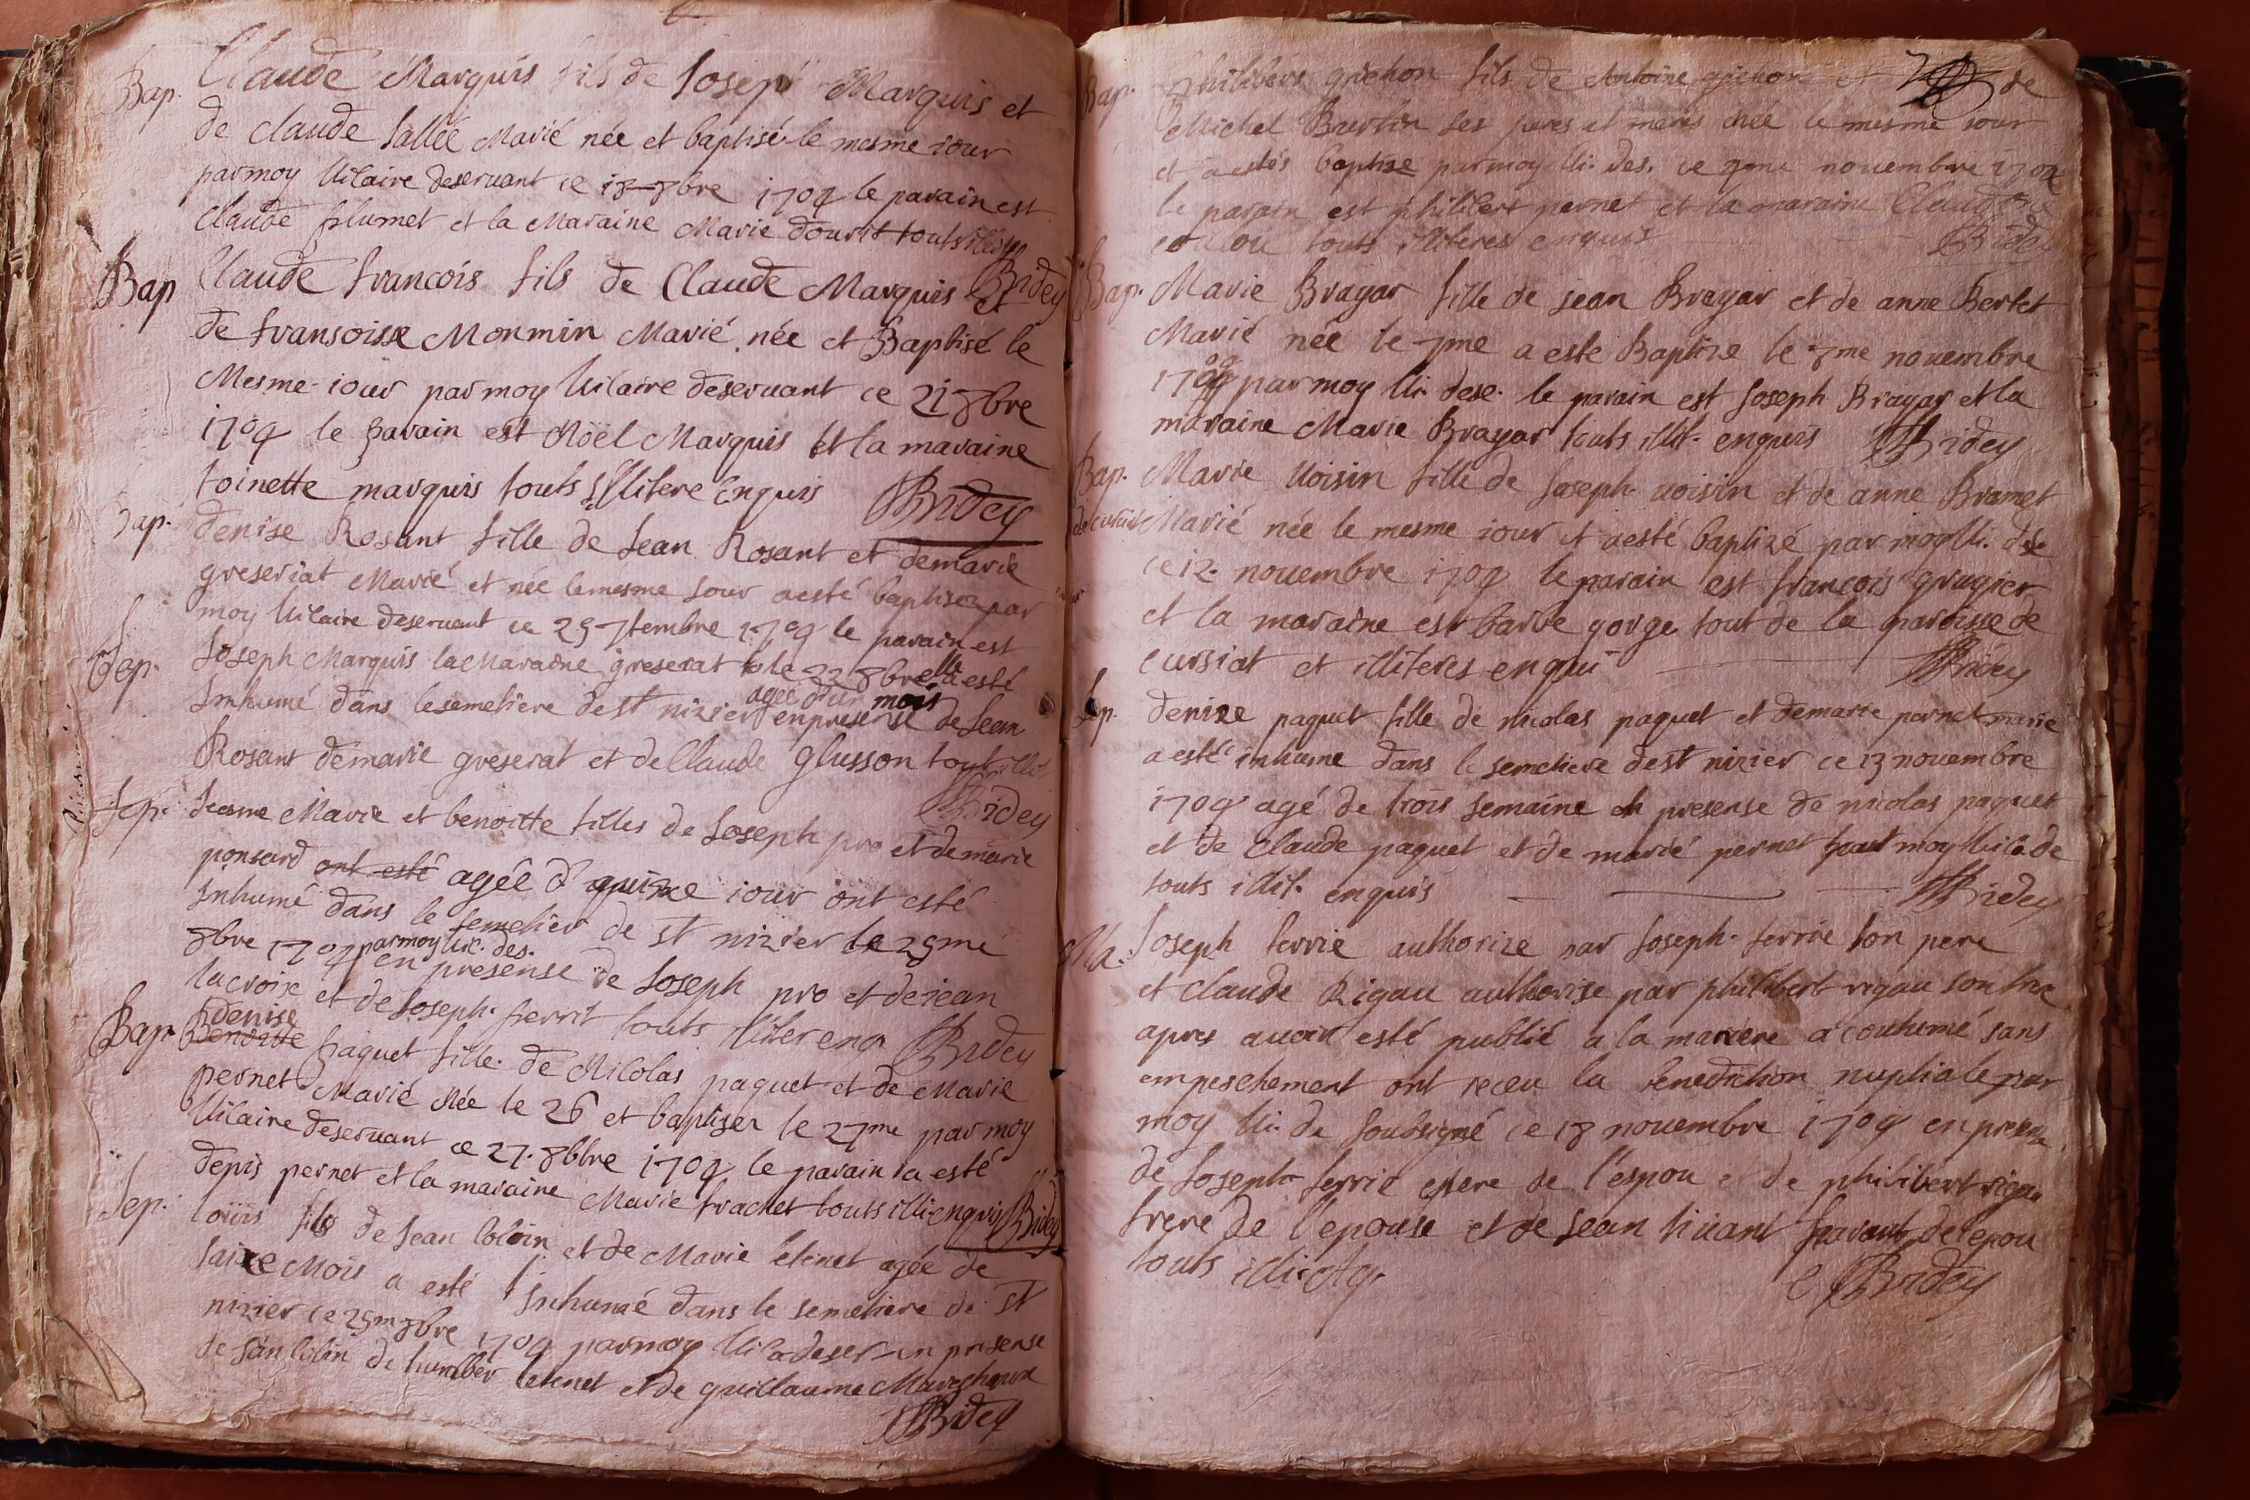 Bap. Claude Marquis fils de Josep Marquis et
de claude sallée Marié née et baptisé le mesme iour
par moy Vilaire deseruant ce 18 8bre 1704 le parain est
Claude plumet et la Maraine Marie touts
Bridey
Bap Claude francois fils de Claude Marquis et
de fransoise Monmin Marié née et Baptisé le
Mesme iour par moy Vilaire deseruant ce 21 8bre
1704 le parain est Noël Marquis et la maraine
toinette marquis touts illitere enquis Bridey
Bap. denise Rosant fille de Jean Rosant et de marie
greseriat Marié et née le mesme Jour a esté baptisez par
moy Vilaire deseruant ce 29 7tembre 1704 le parain est
Joseph Marquis la Maraine greserat
Sep. le 22 8bre elle a esté
Inhumé dans le semetiere de st nizier agée d'un mois en presense de Jean
Rosant de marie greserat et de Claude glusson tout
Bridey
Sep. Jeanne Marie et benoitte filles de Joseph pro et de marie
ponsard ont esté agée de quinze iour ont esté
Inhumé dans le semetier de st nizier le 29me
8bre 1704 par moy Vil. des. en presense de Joseph pro et de iean
lacroix et de Joseph ferrit touts illiter enq Bridey
Bap. Benoitte denise paquet fille de Nicolas paquet et de Marie
pernet Marié Née le 26 et baptisez le 27me par moy
Vilaire deseruant ce 27 8bre 1704 le parain a esté
denis pernet et la maraine Marie trachet touts illi enquis Bridey
Sep. loüis fils de Jean Coloin et de Marie letenet agée de
saize Mois a esté Inhumé dans le semetiere de st
nizier ce 29me 8bre 1704 par moy Vila deser en presense
de Jan Colin de humber letenet et de guillaume
Bridey
Bap. philibert grichon fils de Antoine grichon et de
Michel Burtin ses peres et meres née le mesme iour
et a estés baptize par moy Vi. des. ce novembre 1704
le parain est philibert pernet et la maraine
touts illiteres enquis Bridey
Bap. Marie Brayar fille de jean Brayar et de anne Bertet
Marié née le 7me a este Baptize le 8me nouembre
1704 par moy Vi. dese. le parain est Joseph Brayar et la
maraine Marie Brayar touts illit. enquis Bridey
Bap. de cursiat Marie Uoisin fille de Joseph uoisin et de anne Bramet
Marié née le mesme iour et a esté baptizé par moy Vi. dese
ce 12 nouembre 1704 le parain est francois gruyier
et la maraine est barbe gorge tout de la paroisse de
cursiat et illiteres enqui Bridey
Sep. denize paquet fille de nicolas paquet et de marie pernet marie
a esté inhume dans le semetiere de st nizier ce 13 nouembre
1704 agé de trois semaine en presense de nicolas paquet
et de Claude paquet et de marié pernet tout moy Vila de
touts illit. enquis Bridey
Ma. Joseph ferrie authorize par Joseph ferrie son pere
et Claude Rigau authorise par philibert rigau son frere
apres auoir esté publié a la maniere acoutumé sans
empeschement ont receu la benediction nuptiale par
moy Vi. de soubsigné ce 18 nouembre 1704 en presense
de Joseph ferrie pere de l'espou et de philibert rigau
frere de l'epouse et de Jean tiuant parant de lepou
touts Bridey